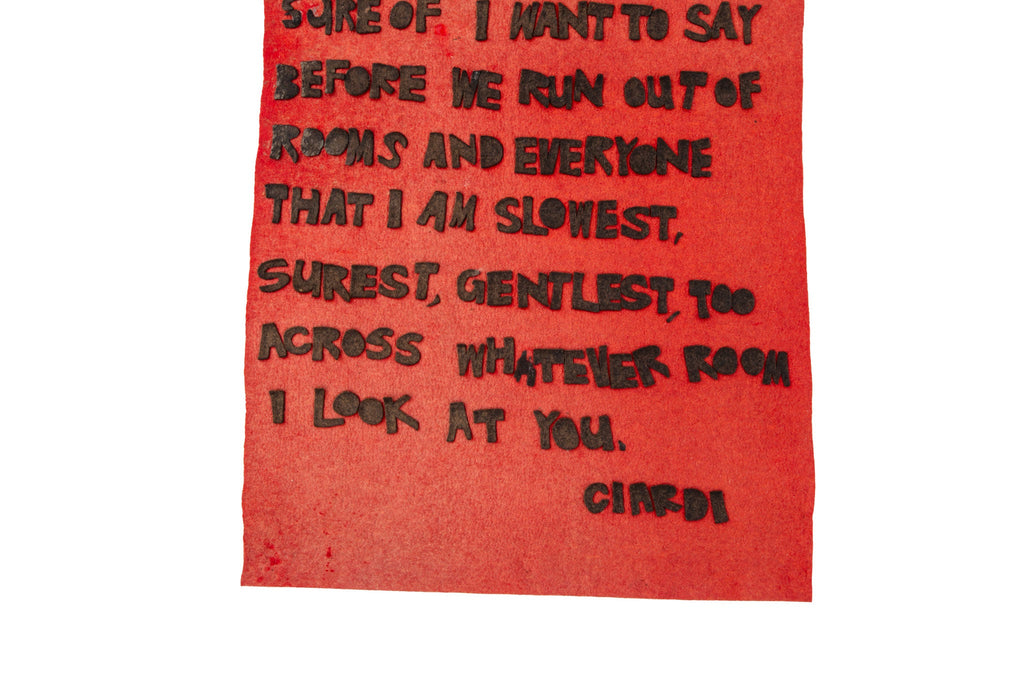 SURE OF I WANT TO SAY
BEFORE WE RUN OUT OF
ROOMS AND EVERYONE
THAT I AM SLOWEST,
SUREST, GENTLEST, TOO
ACROSS WHATEVER ROOM
I LOOK AT YOU.
CIARDI